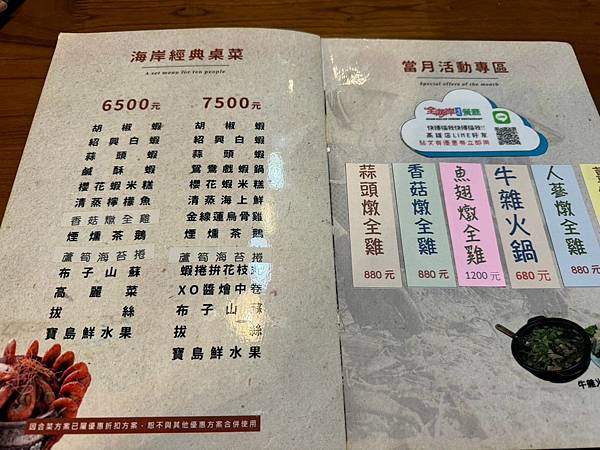 海岸經典桌菜
A set menu for ten people
6500元
胡椒蝦
紹興白蝦
蒜頭蝦
鹹酥蝦
櫻花蝦米糕
清蒸檸檬魚
香菇燉全雞
煙燻茶鵝
蘆筍海苔捲
布子山蘇
高麗菜
拔絲
寶島鮮水果
7500元
胡椒蝦
紹興白蝦
蒜頭蝦
鴛鴦戲蝦鍋
櫻花蝦米糕
清蒸海上鮮
金線蓮烏骨雞
煙燻茶鵝
蘆筍海苔捲
蝦捲拚花枝丸
XO醬燴中卷
布子山蘇
拔絲
寶島鮮水果
因合菜方案已屬優惠折扣方案，恕不與其他優惠方案合併使用
當月活動專區
Special offers of the month
快掃描我快掃描我!!
高雄店LINE好友
點文有優惠等立即用
蒜頭燉全雞
880元
香菇燉全雞
880元
魚翅燉全雞
1200元
牛雜火鍋
680元
人蔘燉全雞
880元
牛雜火